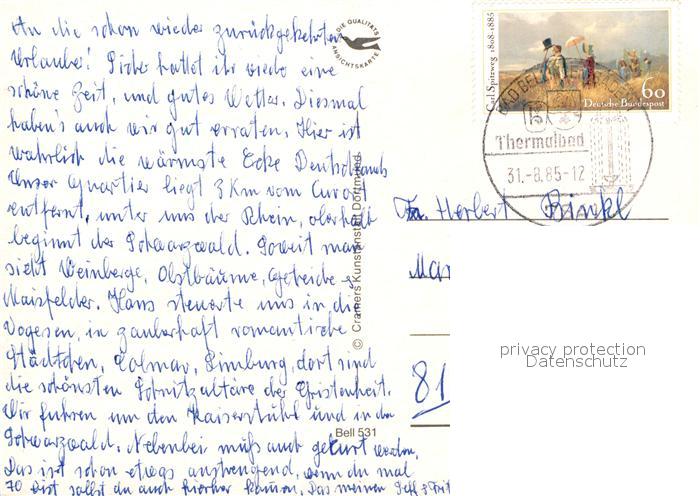 An die schon wieder zurückgekehrten
Urlauber! Sicher hattet ihr wieder eine
schöne Zeit, und gutes Wetter. Diesmal
haben's auch wir gut erraten. Hier ist
wahrlich die wärmste Ecke Deutschlands
Unser Quartier liegt 3 Km vom Kurort
entfernt, unter uns der Rhein, oberhalb
beginnt der Schwarzwald. Soweit man
sieht Weinberge, Obstbäume, Getreide &
Maisfelder. Hans steuerte uns in die
Vogesen, in zauberhaft romantische
Städtchen, Colmar, Limburg, dort sind
die schönsten Schnitzaltäre der Christenheit.
Wir fuhren um den Kaiserstuhl und in den
Schwarzwald. Nebenbei muß auch gekurt werden.
Das ist schon etwas anstrengend, wenn du mal
70 bist sollst du auch hierher kommen. Das meinen
DIE QUALITÄTS
ANSICHTSKARTE
© Cramers Kunstanstalt Dortmund
Bell 531
Carl Spitzweg 1808-1885
60
Deutsche Bundespost
Thermalbad
31.-8.85-12
Fa. Herbert Binkl
Mar
81
privacy protection
Datenschutz